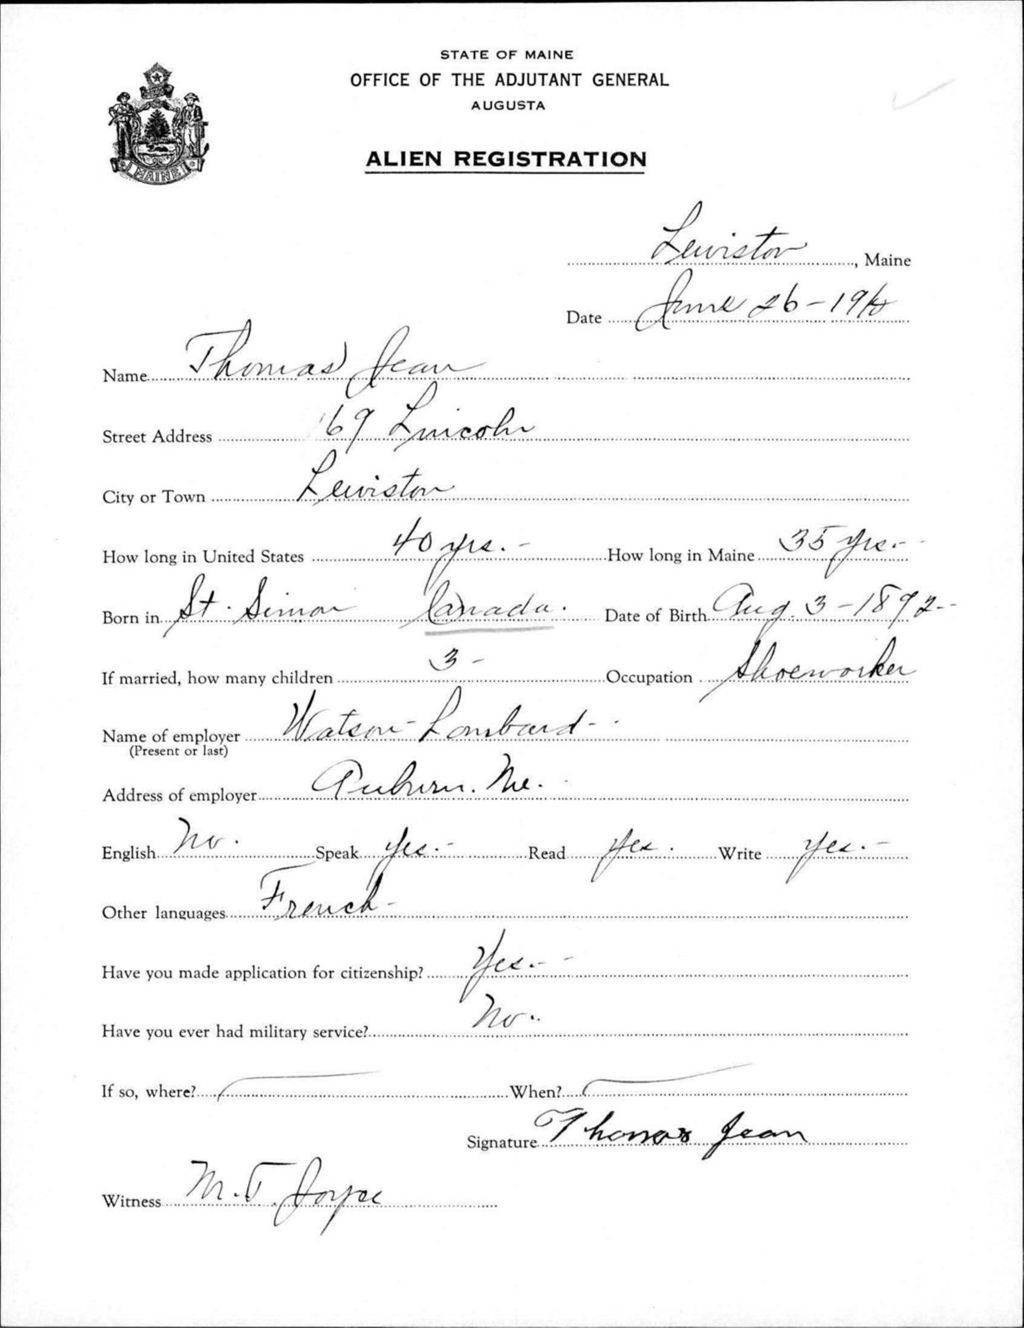 STATE OF MAINE
OFFICE OF THE ADJUTANT GENERAL
AUGUSTA
ALIEN REGISTRATION
MAINE
Lewiston, Maine
Date June 26-1940
Name Thomas Jean
Street Address 169 Lincoln
City or Town Lewiston
How long in United States 40 yrs. - How long in Maine 35 yrs. -
Born in St. Simon Canada. Date of Birth Aug. 3-1892-
If married, how many children 3 - Occupation Shoeworker
Name of employer Watson-Lombard-
(Present or last)
Address of employer Auburn. Me.
English No. Speak Yes. - Read Yes. Write Yes. -
Other languages French -
Have you made application for citizenship? Yes. -
Have you ever had military service? No.
If so, where? When?
Signature Thomas Jean
Witness M. T. Joyce